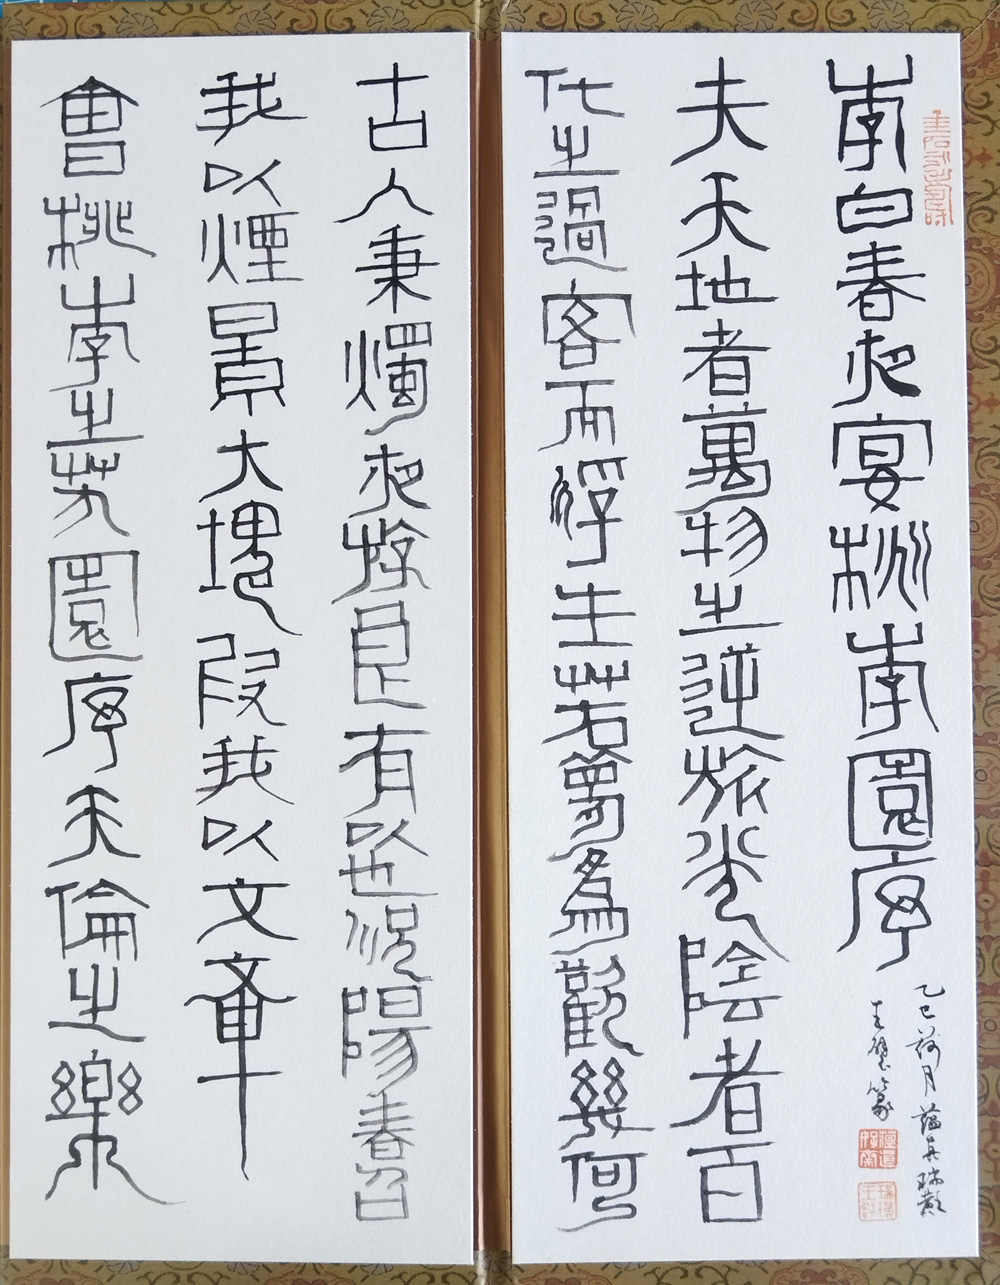 李白春夜宴桃李園序
乙巳荷月蘊真瑞
篆
夫天地者萬物之逆旅光陰者百
代之過客而浮生若夢為歡幾何
古人秉燭夜游良有以也況陽春召
我以煙景大塊叚我以文章
會桃李之芳園序天倫之樂